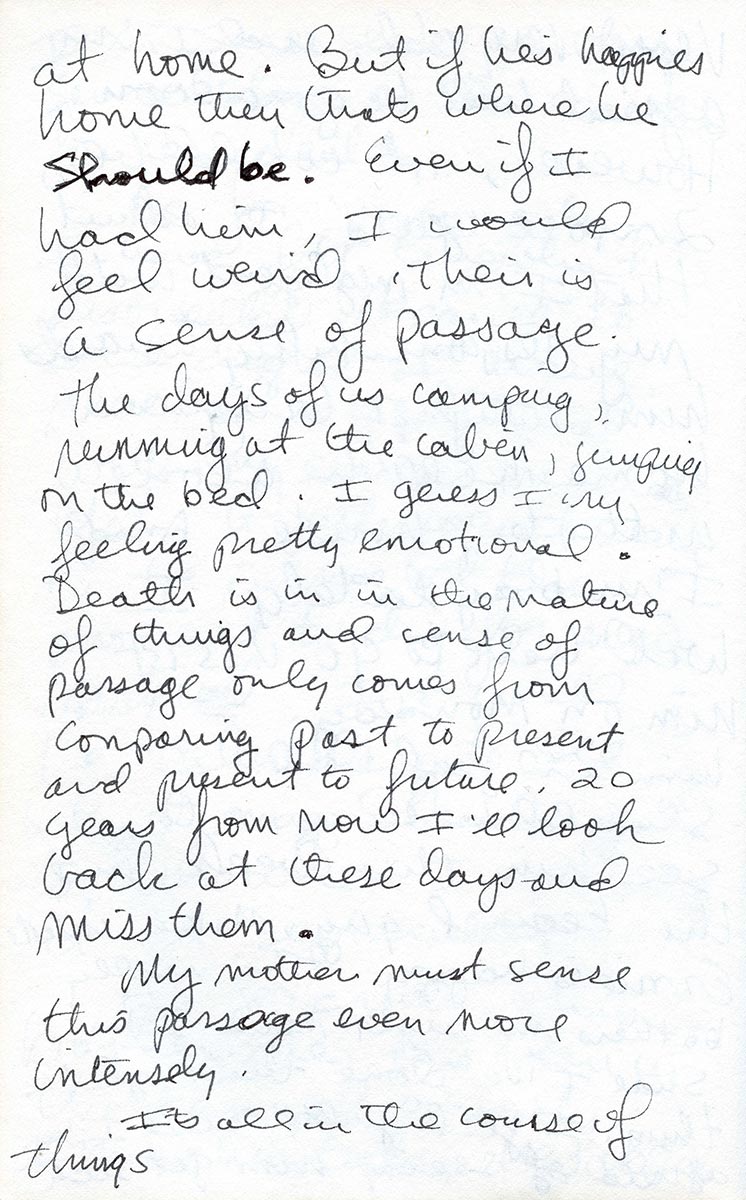 at home. But if he's happies
home then thats where he
Should be. Even if I
had him, I would
feel weird. Their is
a sense of passage.
The days of us camping,
running at the cabin, jumping
on the bed. I guess I'm
feeling pretty emotional.
Death is in in the nature
of things and sense of
passage only comes from
comparing past to present
and present to future. 20
years from now I'll look
back at these days and
miss them.
My mother must sense
this passage even more
intensely.
Its all in the course of
things